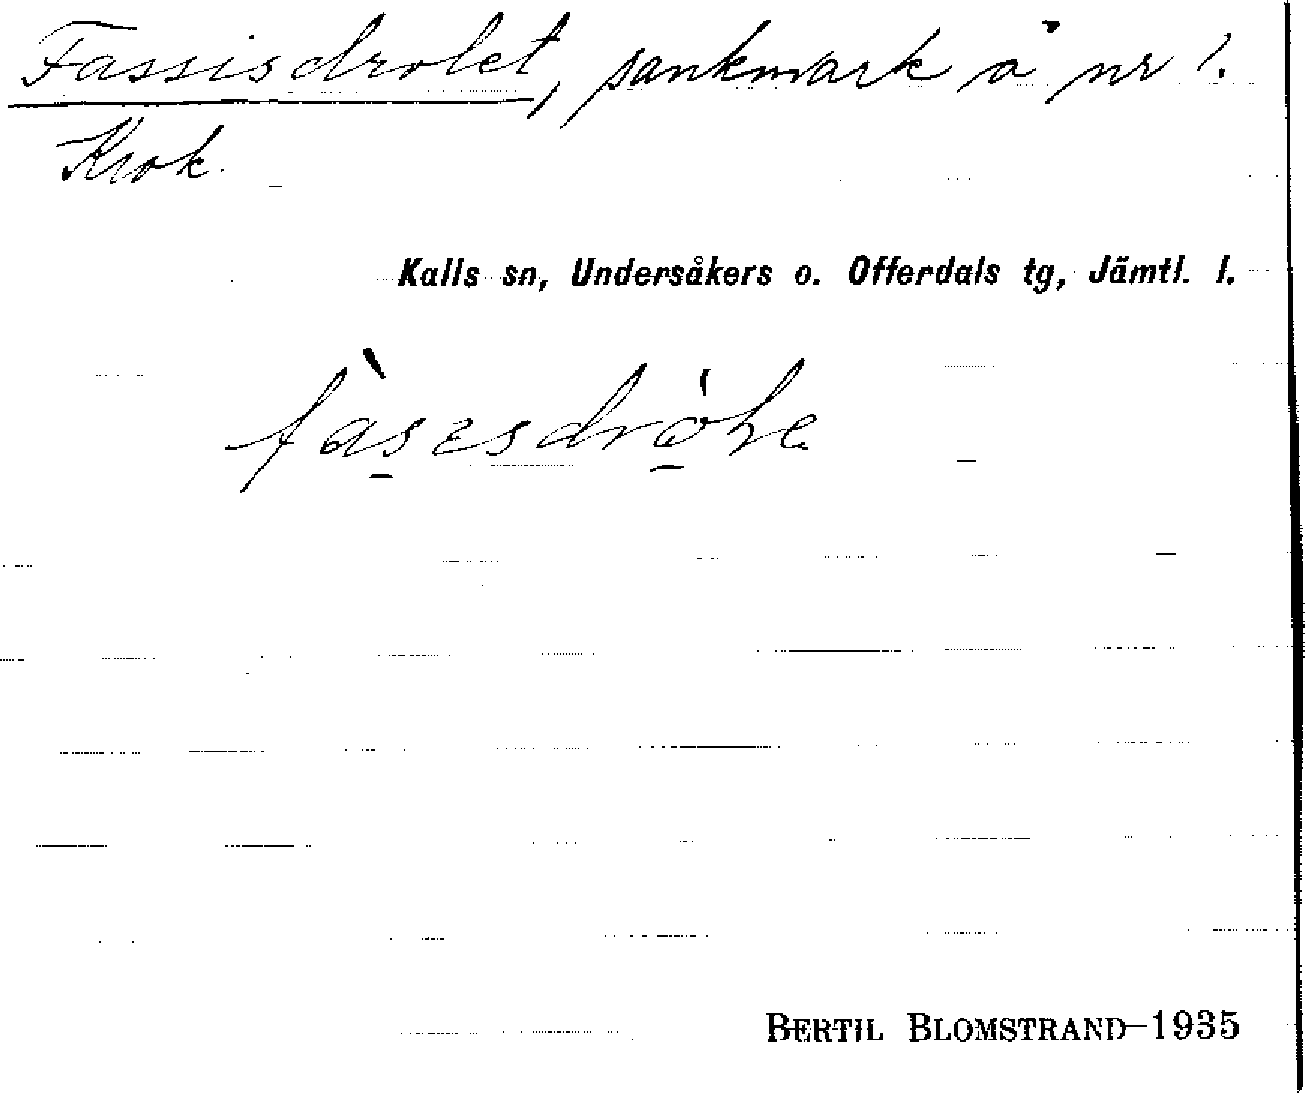 Fassisdrolet, sankmark å nr 1.
Krok.
Kalls sn, Undersåkers o. Offerdals tg, Jämtl. l.
BERTIL BLOMSTRAND—1935